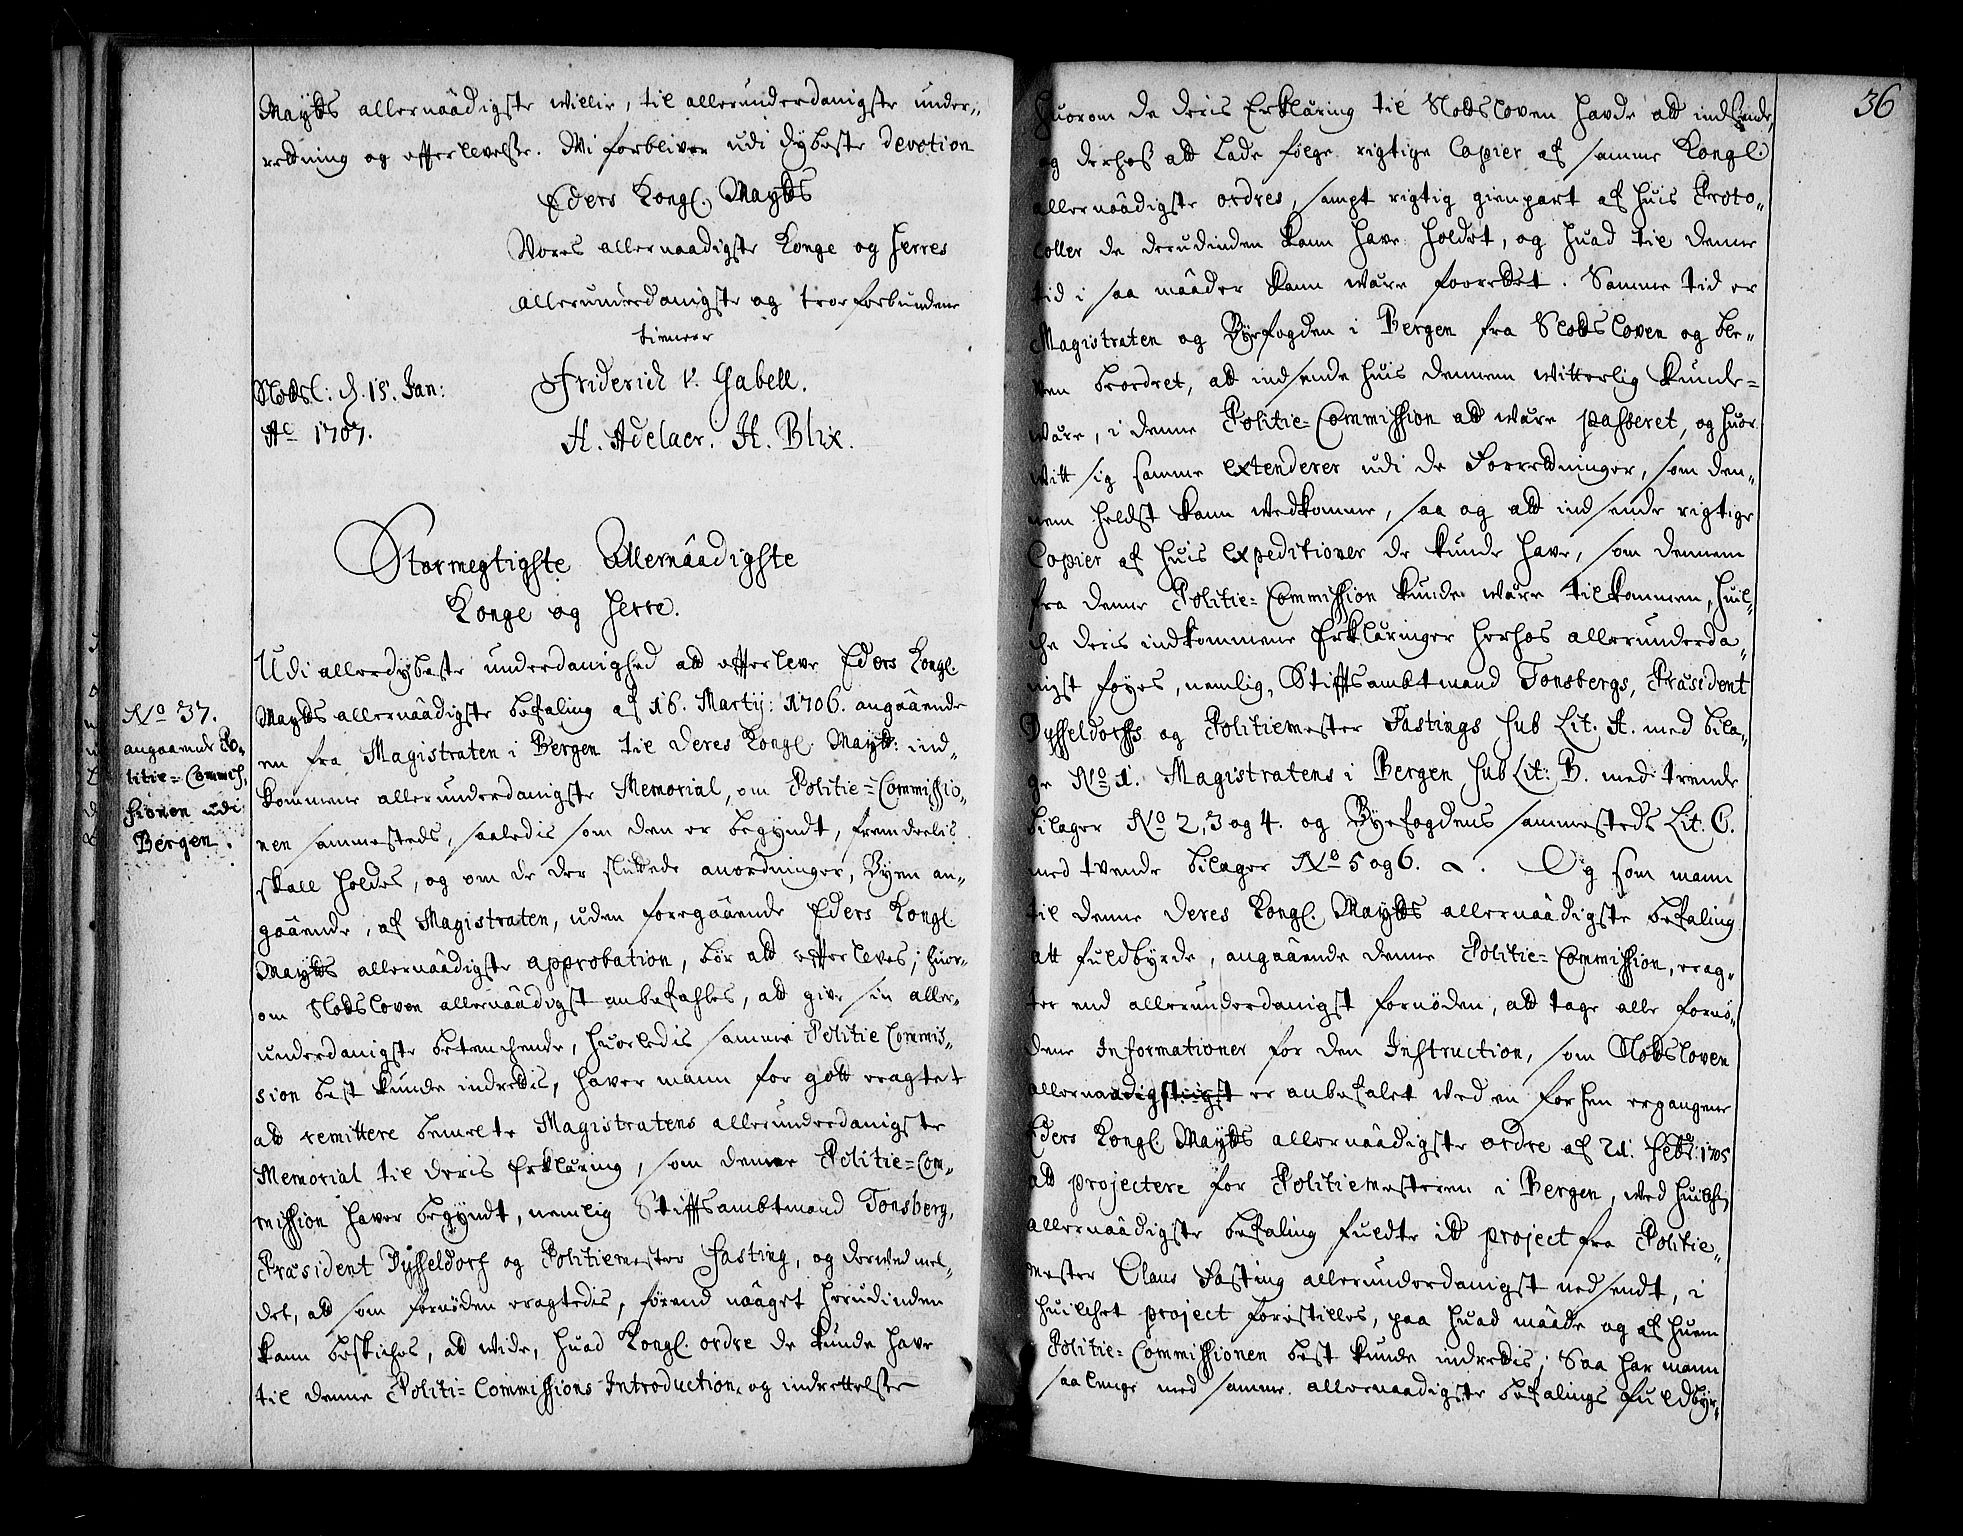 Maytts allernaadigste willie, til allerunderdanigste under-
retning og efterlevelse. Wi forbliver udi dybeste devotion
Eders Kongl. Maytts
Vores allernaadigste Konge og Herres
allerunderdanigste og troe forbundene
tienere
Slotsl: d. 15. Jan:
Ao 1707.
Friderich v. Gabell.
H. Adelaer. H. Blix.
Stormegtigste Allernåådigste
Konge og Herre.
Udi allerdybeste underdanighed att efterleve Eders Kongl.
Maytts allernåådigste befaling af 16. Martij: 1706. angåående
en fra Magistraten i Bergen til Deres Kongl. Maytt: ind-
kommene allerunderdanigste Memorial, om Politie-Commissio-
nen sammesteds, saaledis som den er begyndt, fremdeelis
skall holdes, og om de der sluttede anordninger, Byen an-
gåående, af Magistraten, uden foregåående Eders Kongl.
Maytts allernåådigste approbation, bør att efterleves; huor-
om Slotsloven allernåådigst anbefahles, att give sin aller-
underdanigste betenchende, huorledis samme Politie Commis-
sion best kunde indrettis, haver mann for gott eragtet
att remittere bemelte Magistratens allerunderdanigste
Memorial til deris Erklæring, som denne Politie-Com-
mission haver begyndt, nemlig Stiftsambtmand Tonsberg,
Præsident Dysseldorf og Politiemester Fasting, og derved mel-
det, att som fornøden eragtedis, førend nåâget herudinden
kann beskiches, att wide, huad Kongl. ordre de kunde have
til denne Politi-Commissions Introduction, og indrettelse
No 37.
angaaende Po-
litie-Commis-
sionen udi
Bergen.
36
huorom de deris Erklæring til Slotsloven havde att indsende,
og derhos att lade følge rigtige Copier af samme Kongl.
allernåådigste ordres, sampt rigtig gienpart af huis Proto-
coller de derudinden kann have holdet, og huad til denne
tid i saa mååder kann være forrettet. Samme tid er
Magistraten og Byefogden i Bergen fra Slotsloven og ble-
ven beordret, att indsende huis dennem vitterlig kunde
være, i denne Politie-Commission att være passeret, og huor
vitt sig samme extenderer udi de Forretninger, som den-
nem heldst kann vedkomme, saa og att indsende rigtige
Copier af huis expeditioner de kunde have, som dennem
fra denne Politie-Commission kunde være tilkommen, huil-
che deris indkommene Erklæringer herhos allerunderda-
nigst føyes, nemlig, Stiftsambtmand Tonsbergs, Præsident
Dysseldorffs og Politiemester Fastings sub Lit: A. med bila-
ge No 1. Magistratens i Bergen sub Lit: B. med trende
bilager No 2, 3 og 4. og Byefogdens sammesteds Lit: C.
med tvende bilager No 5 og 6. Og som mann
til denne Deres Kongl. Maytts allernåådigste befaling
att fuldbyrde, angåående denne Politie-Commission, erag-
ter end allerunderdanigst fornøden, att tage alle fornø-
dene Informationer for den Instruction, som Slotsloven
allernaadigst er anbefalet ved en forhen ergangene
Eders Kongl. Maytts allernåådigste ordre af 21. Febr: 1705
att projectere for Politiemesteren i Bergen, ved huilchen
allernåådigste befaling fuldte itt project fra Politie-
mester Claus Fasting allerunderdanigst nedsendt, i
huilchet project forestilles, paa huad mååde og af huem
Politie-Commissionen best kunde indrettis; Saa har mann
saa lenge med samme allernaadigste befalings fuldbyr-